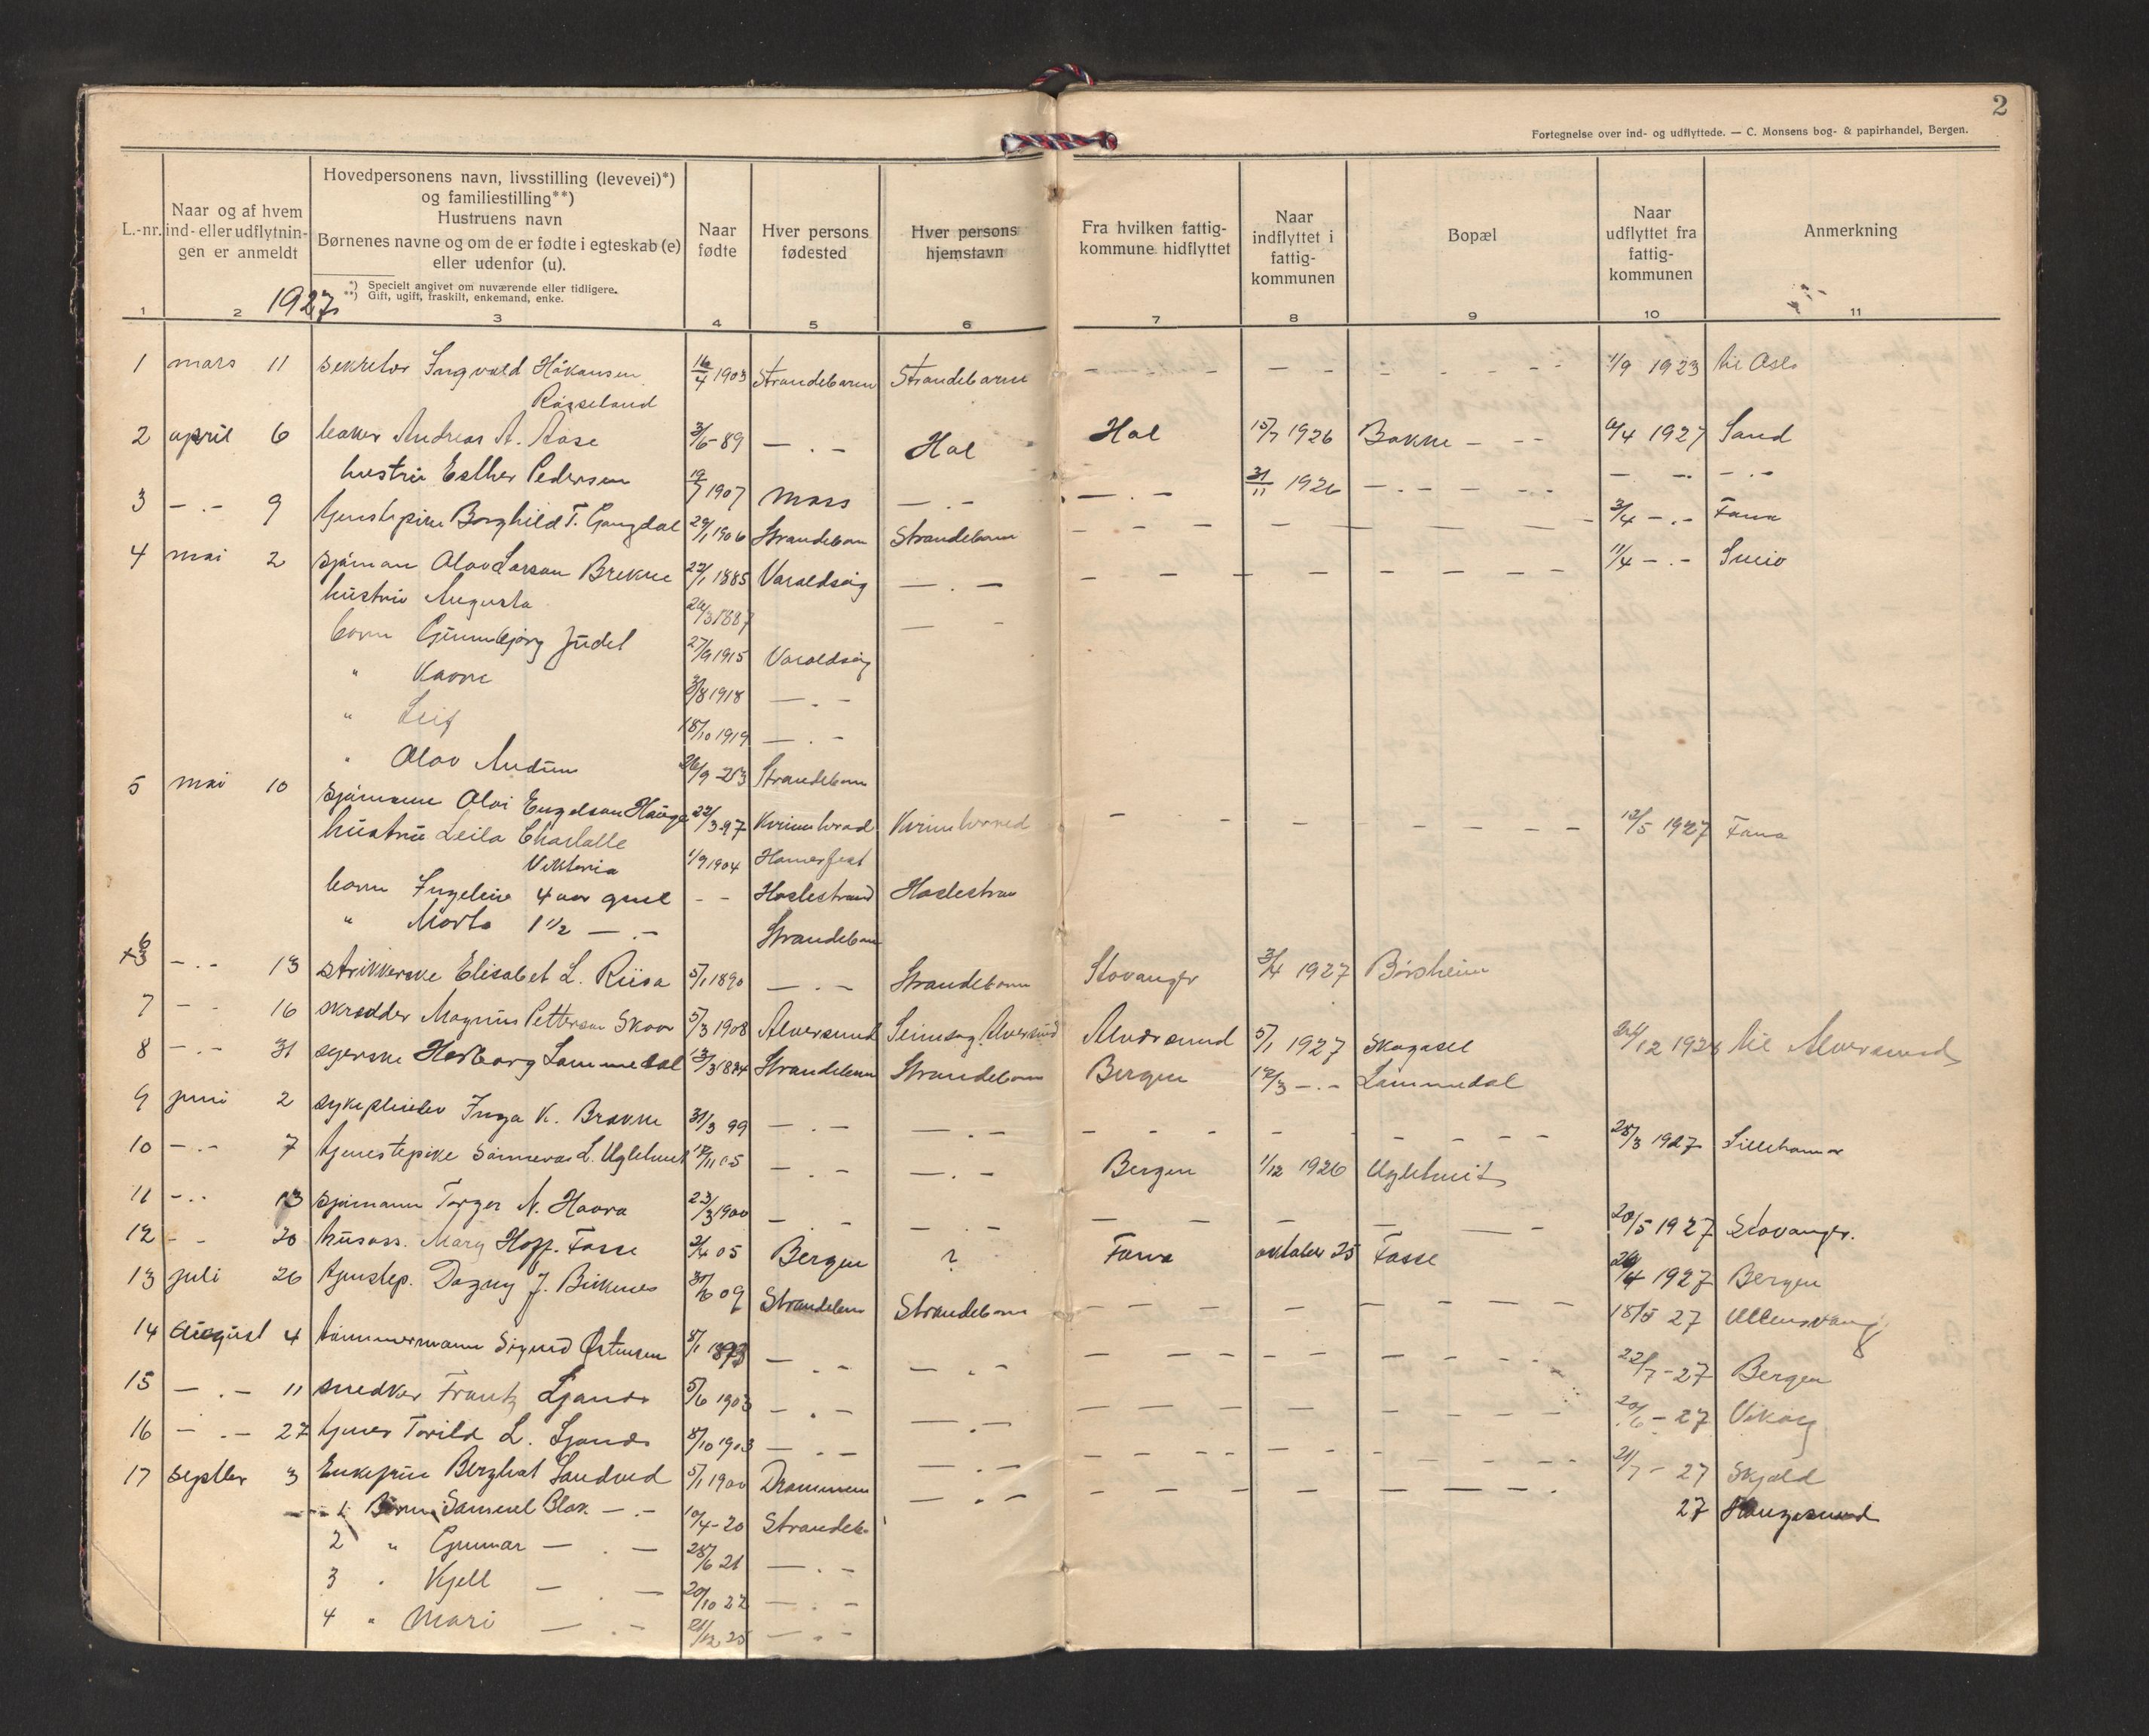 2
Fortegnelse over ind- og udflyttede. — C. Monsens bog- & papirhandel, Bergen.
L.-nr.
Naar og af hvem
ind- eller udflytnin-
gen er anmeldt
Hovedpersonens navn, livsstilling (levevei)*)
og familiestilling**)
Hustruens navn
Børnenes navne og om de er fødte i egteskab (e)
eller udenfor (u).
*) Specielt angivet om nuværende eller tidligere.
**) Gift, ugift, fraskilt, enkemand, enke.
Naar
fødte
Hver persons
fødested
Hver persons
hjemstavn
Fra hvilken fattig-
kommune hidflyttet
Naar
indflyttet i
fattig-
kommunen
Bopæl
Naar
udflyttet fra
fattig-
kommunen
Anmerkning
1927
1 2 3 4 5 6 7 8 9 10 11
1 mars 11 sekretær Ingvald Håkansen 16/4 1903 Strandebarm Strandebarm - - - - - - 1/9 1923 til Oslo
Røsseland
2 april 6 baker Andreas A. Aase 3/6-89 — . — Hol Hol 15/7 1926 Bakke — - - 6/4 1927 Sand
hustru Esther Pedersen 19/7 1907 Moss — . - — . — 31/11 1926 — . - — - - — . -
3 - . - 9 tjenestepike Borghild T. Gangdal 29/1 1906 Strandebarm Strandebarm - - - - - 3/4 - . - Fana
4 mai 2 sjøman Olav Larsen Brekke 22/1 1885 Varaldsøy — . — - - - - - 11/4 - . - Sveio
hustru Augusta 26/3 1887 — -
barn Gunnbjørg Judel 27/9 1915 Varaldsøy
" Kaare 3/8 1918 — . -
" Leif 18/10 1919 — . -
" Olav Audun 26/9 -23 Strandebarm
5 mai 10 sjømann Olai Engelsen Hauge 22/3 97 Kvinnherad Kvinnherred - - - - - 12/5 1927 Fana
hustru Leila Charlotte
Viktoria 1/9 1904 Hamerfest
barn Ingeleiv 4 aar gml - - Haslestrand Haslestran
" Marta 1 1/2 — . - Strandebarm
6 - . - 13 strikkerske Elisabet L. Riisa 5/1 1890 — . - Strandebarm Stavanger 3/4 1927 Børsheim
7 - - 16 skrædder Magnus Petterson Skaar 5/3 1908 Alversund Seimsog Alversund Alversund 5/1 1927 Skagasel 24/12 1928 til Alversund
8 - . - 31 syerske Herborg Lammedal 13/3 1884 Strandebarm Strandebarm Bergen 12/3 - . - Lammedal
9 juni 2 sykepleier Inga K. Brakke 31/3 99 — . - — . - - - - - - 25/3 1927 Lillehamar
10 - . - 7 tjenestepike Sanneva L. Uglehus 12/11 05 — . - — . - Bergen 1/12 1926 Uglehus
11 - . . 13 sjømann Torger N. Haara 23/3 1900 — . - — . - - - - - - 20/5 1927 Stavanger.
12 - - 20 husass. Mary Hoff. Fosse 3/4 05 Bergen ? Fana oktober 25 Fosse 26/4 1927 Bergen
13 juli 26 tjenstep. Dagny J. Birkenes 31/6 09 Strandebarm Strandebarm - - - - - 18/5 27 Ullensvang
14 august 4 tømmermann Sigurd Østensen 8/1 1893 — . - — . - - - - - - 22/7 - 27 Bergen
15 — . - 11 snedker Frantz Ljones 5/6 1903 — . - — . - - - - - - 20/6 - 27 Vikøy
16 — . - 27 tjenes Torild L. Ljones 8/10 1903 — . - — . - - - - - - 21/7 - 27 Skjold
17 septbr 3 Enkefrue Berghat Sandved 5/1 1900 Drammen — . - - - - - - 27 Haugesund
1 Barn Samuel Blak. — . - 10/4-20 Strandeb.
2 " Gunnar — . — 28/6 21 — . -
3 " Kjell — . — 20/10 22 — . -
4 " Mari — . - 21/12 25 — . -